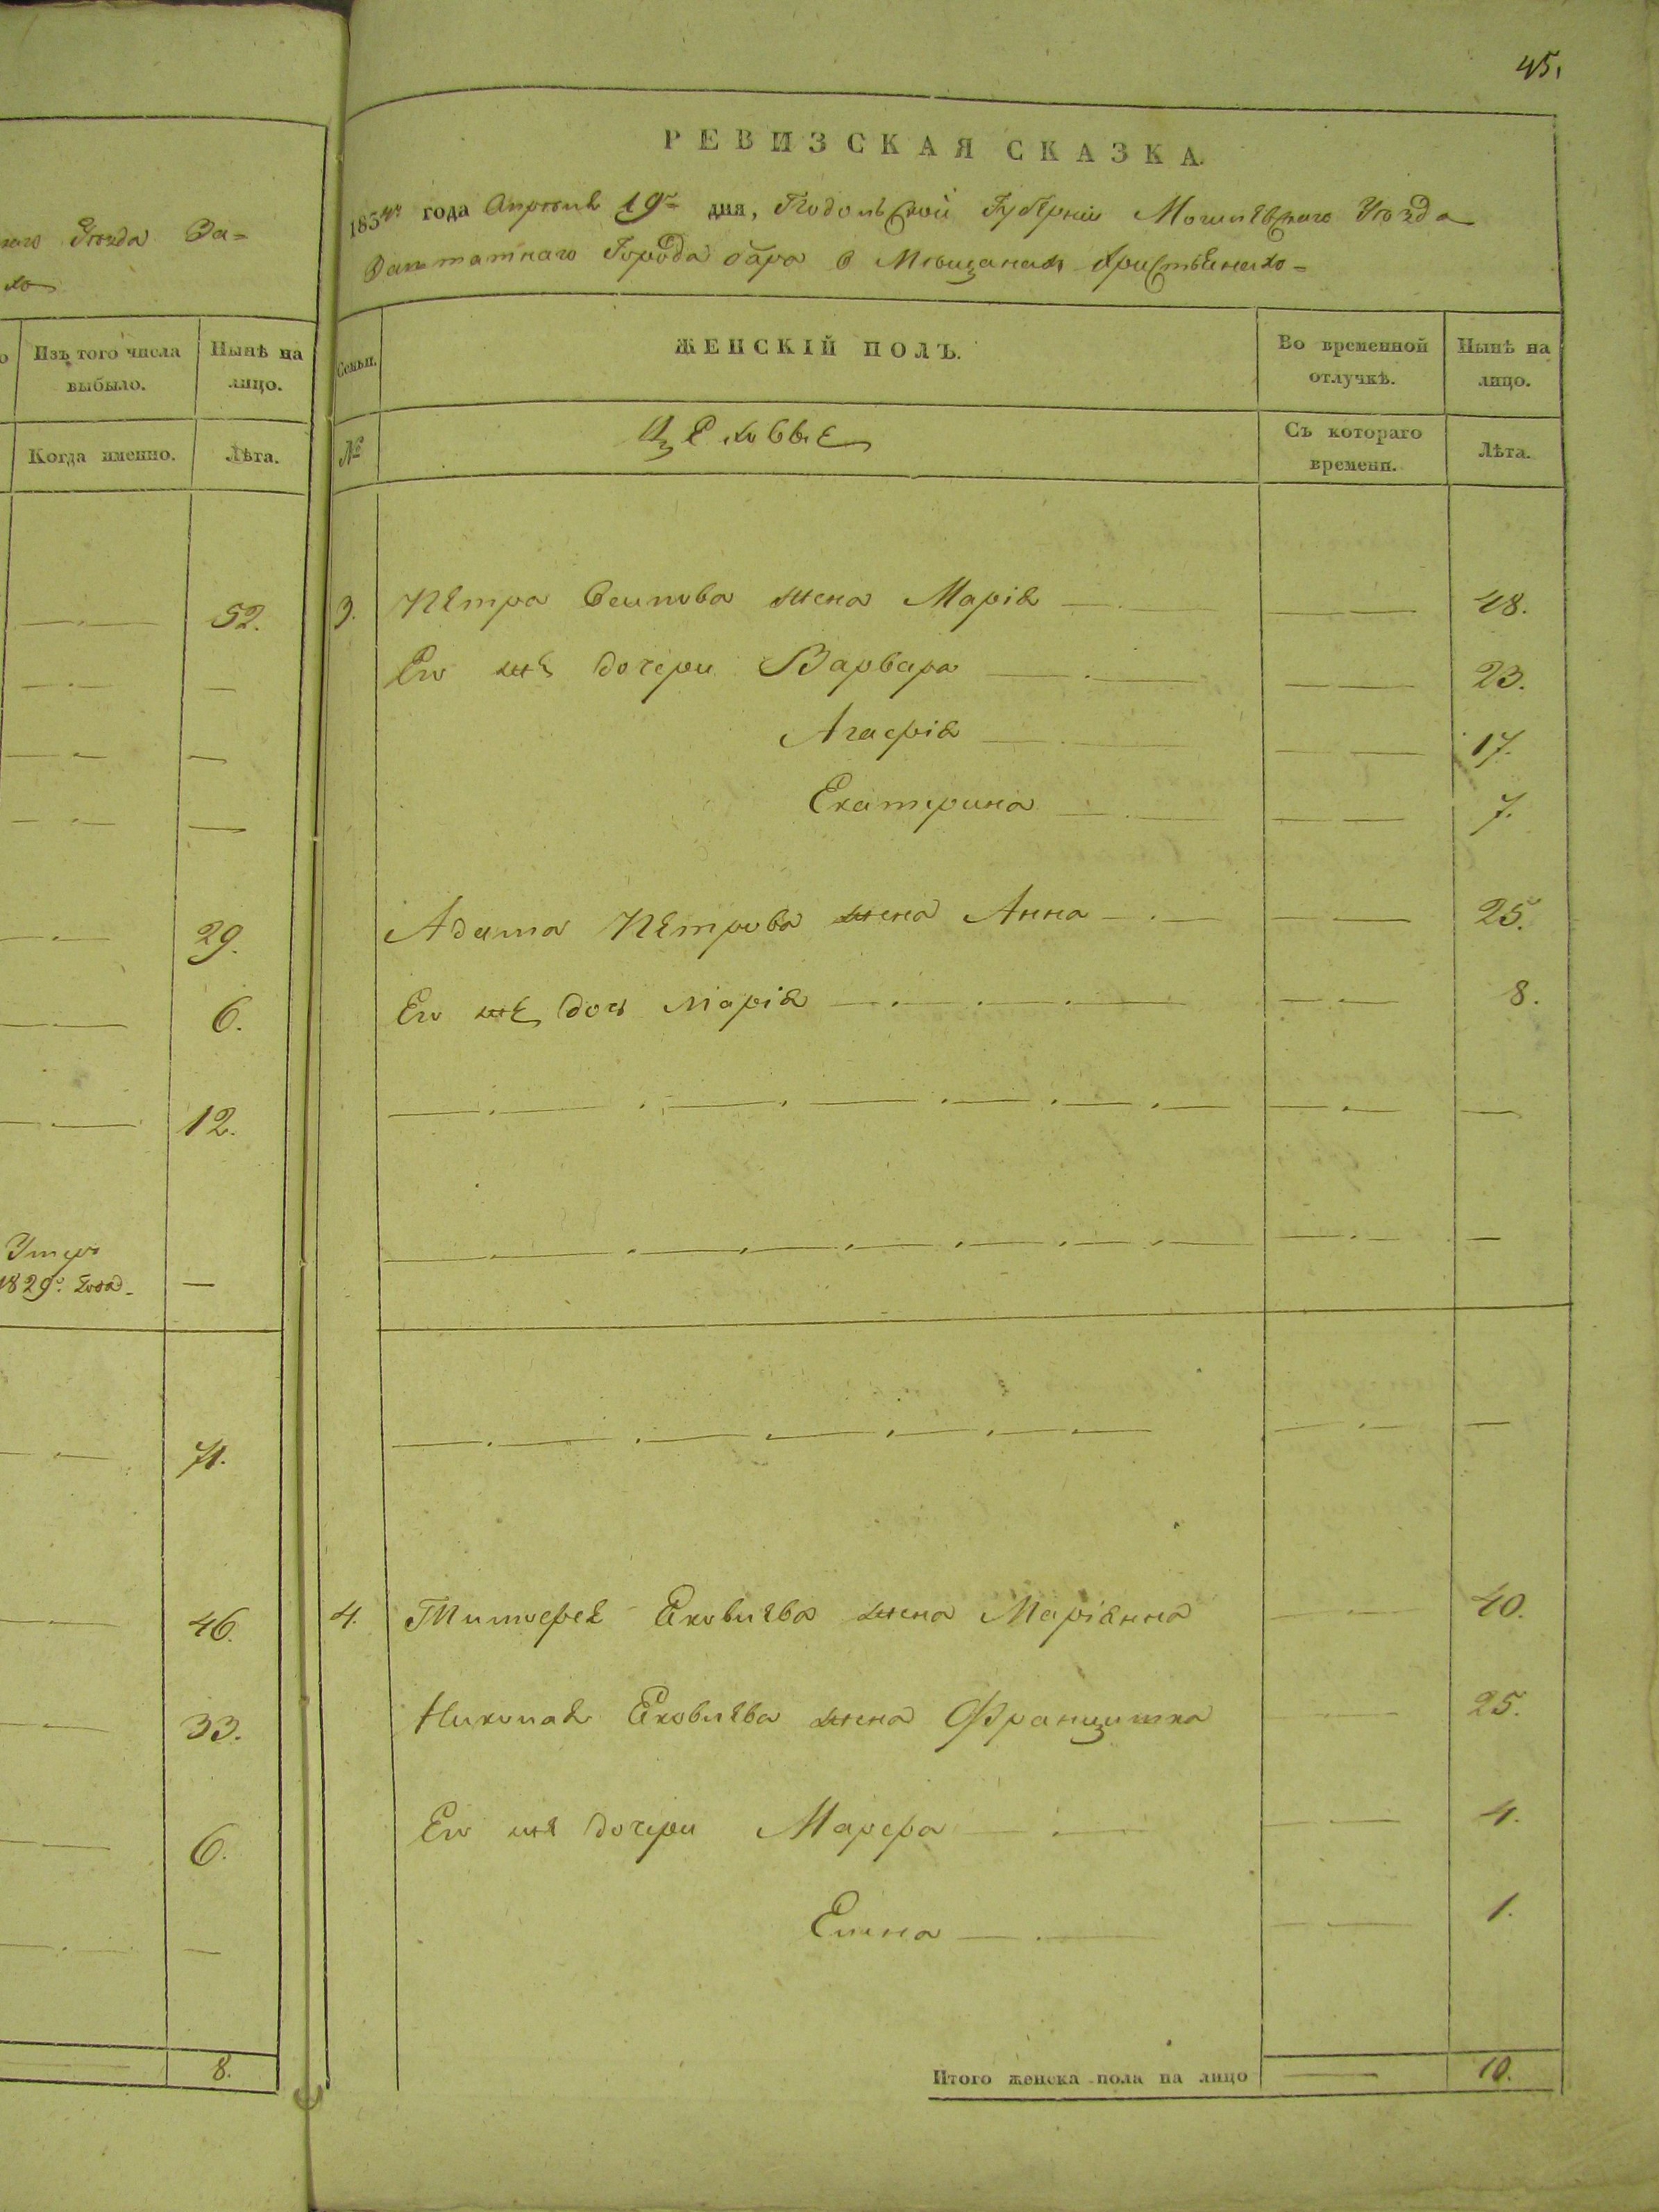 Уѣзда За=
хъ
Изъ того числа выбыло.
Нынѣ на лицо.
Когда именно.
Лѣта.
52.
29.
6.
12.
Умеръ
1829го Года
71.
46.
33.
6.
8.
45.
РЕВИЗСКАЯ СКАЗКА.
1834го года Апрѣля 19го дня, Подольской Губерніи Могилевскаго Уѣзда
Заштатнаго Города Бара о Мѣщанахъ Христьянахъ
Семьи.
ЖЕНСКІЙ ПОЛЪ.
Во временной отлучкѣ.
Нынѣ на лицо.
№
Цеховые
Съ котораго времени.
Лѣта.
3. Петра жена Марія 48.
Его же дочери Варвара 23.
Агафія 17.
Екатерина 7.
Адама Петрова жена Анна 25.
Его же дочь Марія 8.
4. Тимофея Яковлева жена Маріянна 40.
Николая Яковлева жена Францишка 25.
Его же дочери Марфа 4.
Елена 1.
Итого женска пола на лицо 10.